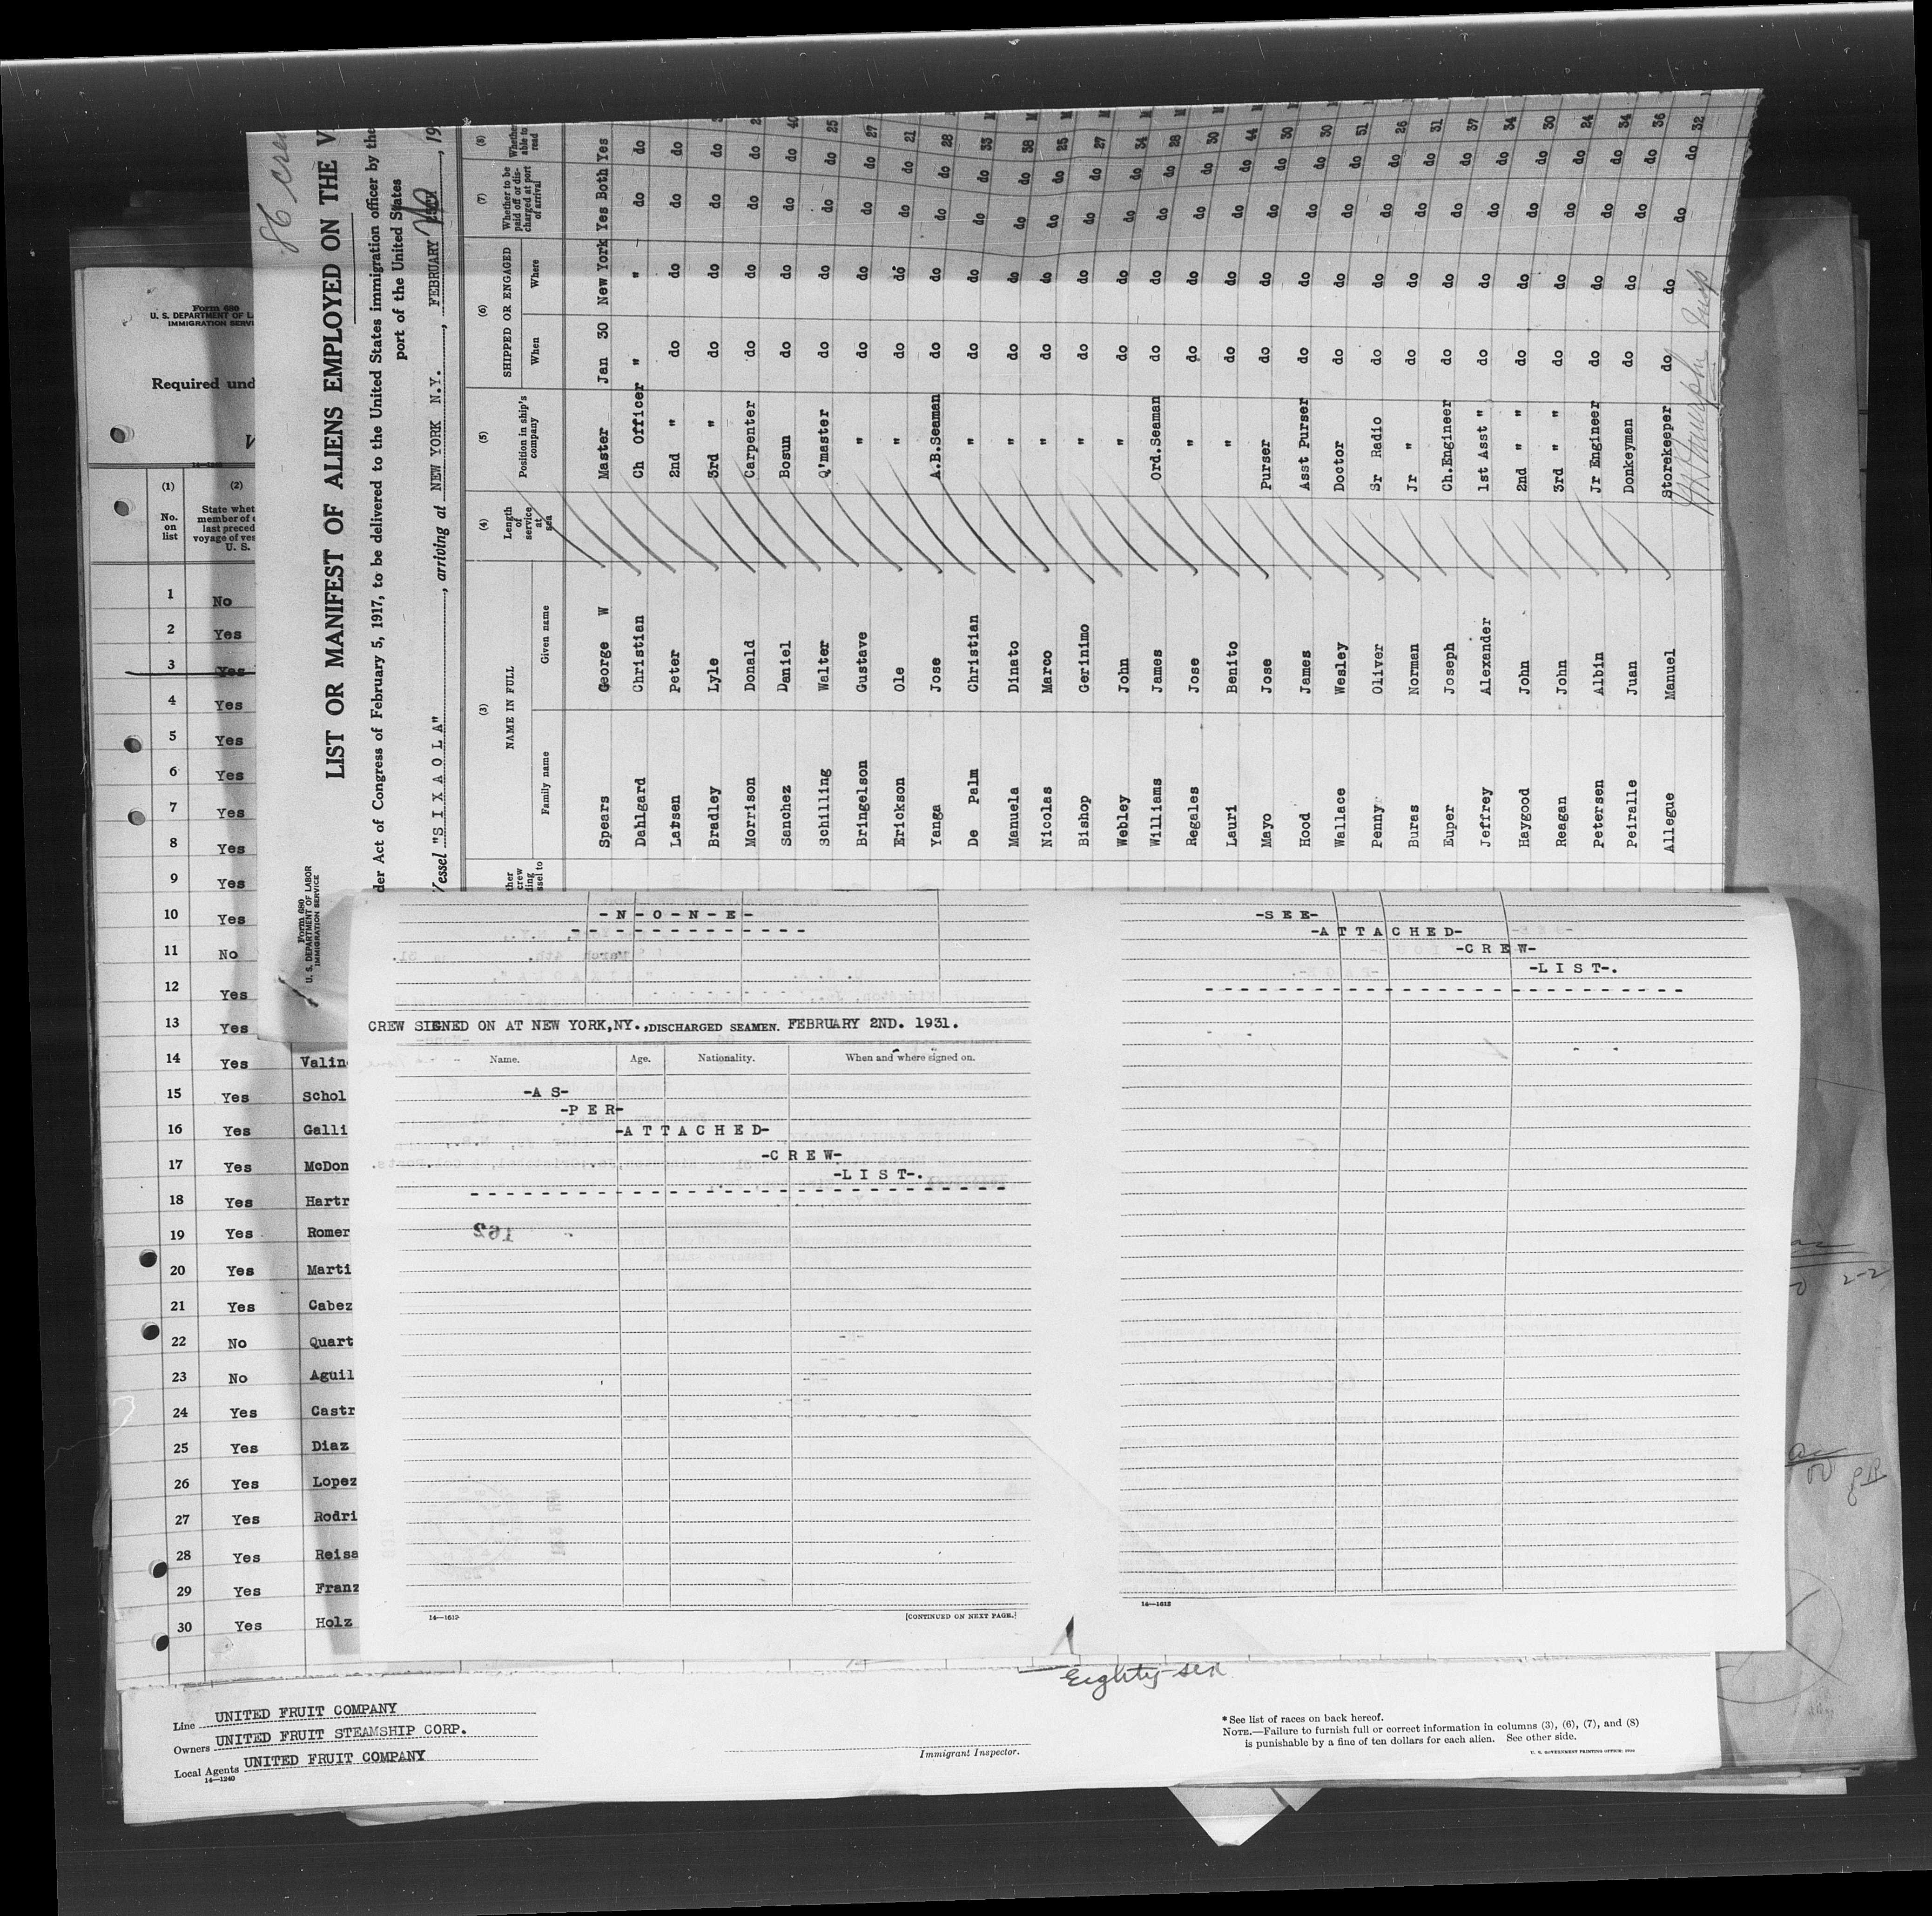 86 crew
LIST OR MANIFEST OF ALIENS EMPLOYED ON THE V
der Act of Congress of February 5, 1917, to be delivered to the United States immigration officer by the
port of the United States
Vessel "S I X A O L A", arriving at NEW YORK N.Y., FEBRUARY , 19
Form 680
U. S. DEPARTMENT OF LABOR
IMMIGRATION SERVICE
(3) (4) (5) (6) (7) (8)
NAME IN FULL
Family name Given name
Length of service at sea
Position in ship's company
SHIPPED OR ENGAGED
When Where
Whether to be paid off or discharged at port of arrival
Whether able to read
Spears George W Master Jan 30 New York Yes Both Yes
Dahlgard Christian Ch Officer " " do do
Larsen Peter 2nd " do do do do
Bradley Lyle 3rd " do do do do
Morrison Donald Carpenter do do do do
Sanchez Daniel Bosun do do do do 40
Schilling Walter Q'master do do do do 25
Bringelson Gustave " do do do do 27
Erickson Ole " do do do do 21
Yanga Jose A.B.Seaman do do do do 28
De Palm Christian " do do do do 33
Manuela Dinato " do do do do 38
Nicolas Marco " do do do do 25
Bishop Gerinimo " do do do do 27
Webley John " do do do do 34
Williams James Ord.Seaman do do do do 28
Regales Jose " do do do do 30
Lauri Benito " do do do do 44
Mayo Jose Purser do do do do 30
Hood James Asst Purser do do do do 30
Wallace Wesley Doctor do do do do 51
Penny Oliver Sr Radio do do do do 26
Buras Norman Jr " do do do do 31
Euper Joseph Ch.Engineer do do do do 37
Jeffrey Alexander 1st Asst " do do do do 34
Haygood John 2nd " " do do do do 30
Reagan John 3rd " " do do do do 24
Petersen Albin Jr Engineer do do do do 34
Peiralle Juan Donkeyman do do do do 36
Allegue Manuel Storekeeper do do do do 32
Form 680
U. S. DEPARTMENT OF L
IMMIGRATION SERVI
Required und
14—1240
(1) (2)
No. on list
State whet
member of c
last preced
voyage of ves
U. S.
1 No
2 Yes
3 Yes
4 Yes
5 Yes
6 Yes
7 Yes
8 Yes
9 Yes
10 Yes
11 No
12 Yes
13 Yes
14 Yes Valin
15 Yes Schol
16 Yes Galli
17 Yes McDon
18 Yes Hartr
19 Yes Romer
20 Yes Marti
21 Yes Cabez
22 No Quart
23 No Aguil
24 Yes Castr
25 Yes Diaz
26 Yes Lopez
27 Yes Rodri
28 Yes Reisa
29 Yes Franz
30 Yes Holz
-N-O-N-E-
CREW SIGNED ON AT NEW YORK,NY., DISCHARGED SEAMEN. FEBRUARY 2ND. 1931.
Name. Age. Nationality. When and where signed on.
-A S-
-P E R-
-A T T A C H E D-
-C R E W-
-L I S T-.
162
14—1612 [CONTINUED ON NEXT PAGE.]
-S E E-
-A T T A C H E D-
-C R E W-
-L I S T-.
14—1612
Eighty-six
Line UNITED FRUIT COMPANY
Owners UNITED FRUIT STEAMSHIP CORP.
Local Agents UNITED FRUIT COMPANY
14—1240
Immigrant Inspector.
* See list of races on back hereof.
NOTE.—Failure to furnish full or correct information in columns (3), (6), (7), and (8)
is punishable by a fine of ten dollars for each alien. See other side.
2-2